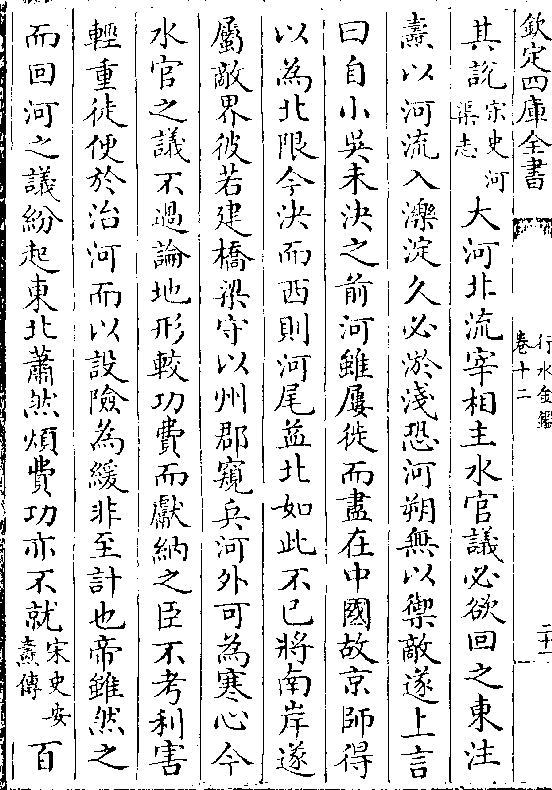 欽定四庫全書
行水金鑑
卷十二
二十一
其說宋史河渠志大河北流宰相主水官議必欲回之東注
燾以河流入濼淀久必淤淺恐河朔無以禦敵遂上言
曰自小吳未決之前河雖屢徙而盡在中國故京師得
以為北限今決而西則河尾益北如此不已將南岸遂
屬敵界彼若建橋梁守以州郡窺兵河外可為寒心今
水官之議不過論地形較功費而獻納之臣不考利害
輕重徒便於治河而以設險為緩非至計也帝雖然之
而回河之議紛起東北蕭然煩費功亦不就宋史安燾傳百